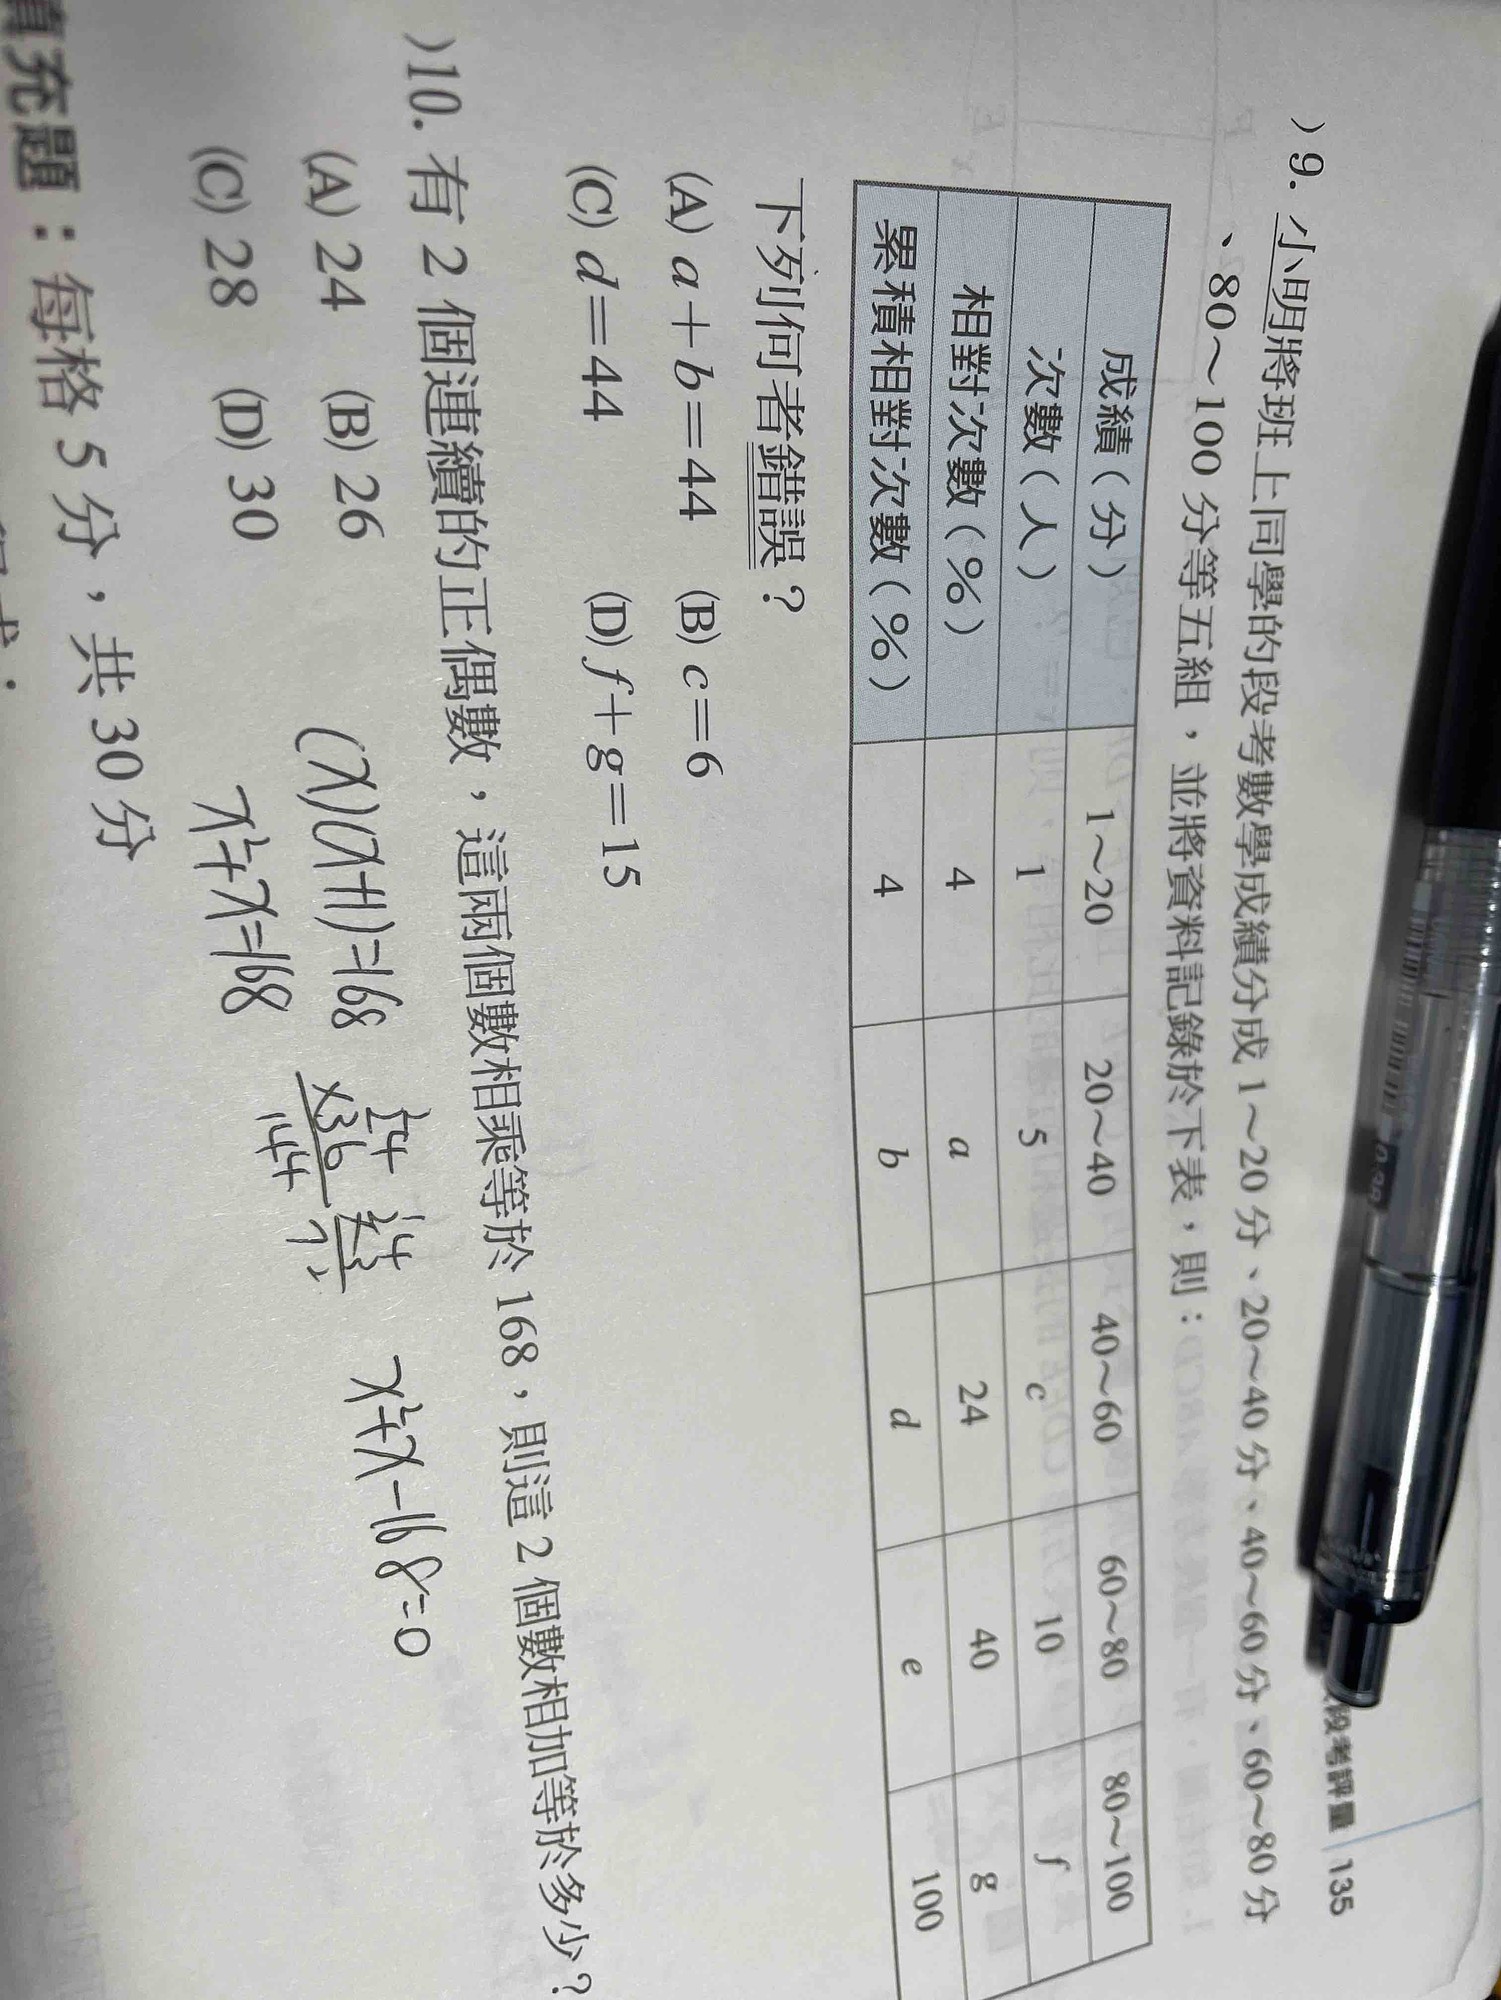 段考評量 135
)9. 小明將班上同學的段考數學成績分成 1～20 分、20～40 分、40～60 分、60～80 分
、80～100 分等五組，並將資料記錄於下表，則：
成績(分) 1～20 20～40 40～60 60～80 80～100
次數(人) 1 5 c 10 f
相對次數(%) 4 a 24 40 g
累積相對次數(%) 4 b d e 100
下列何者錯誤？
(A) a＋b＝44 (B) c＝6
(C) d＝44 (D) f＋g＝15
)10. 有 2 個連續的正偶數，這兩個數相乘等於 168，則這 2 個數相加等於多少？
(A) 24 (B) 26
(C) 28 (D) 30
(x)(x+1)=168
x²+x=168
x36
144
x²+x-168=0
填充題：每格 5 分，共 30 分